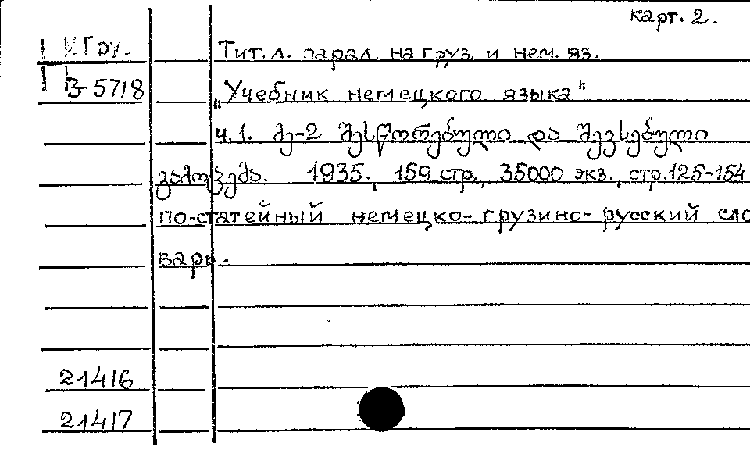 карт. 2.
Гру. Тит. л. парал. на груз и нем. яз.
3-5718 „Учебник немецкого языка"
ч.1. მე-2 შესწორებული და შევსებული
გამოცემა. 1935., 159 стр., 35000 экз., стр.125-154
по-статейный немецко-грузино-русский сло
варь.
21416
21417